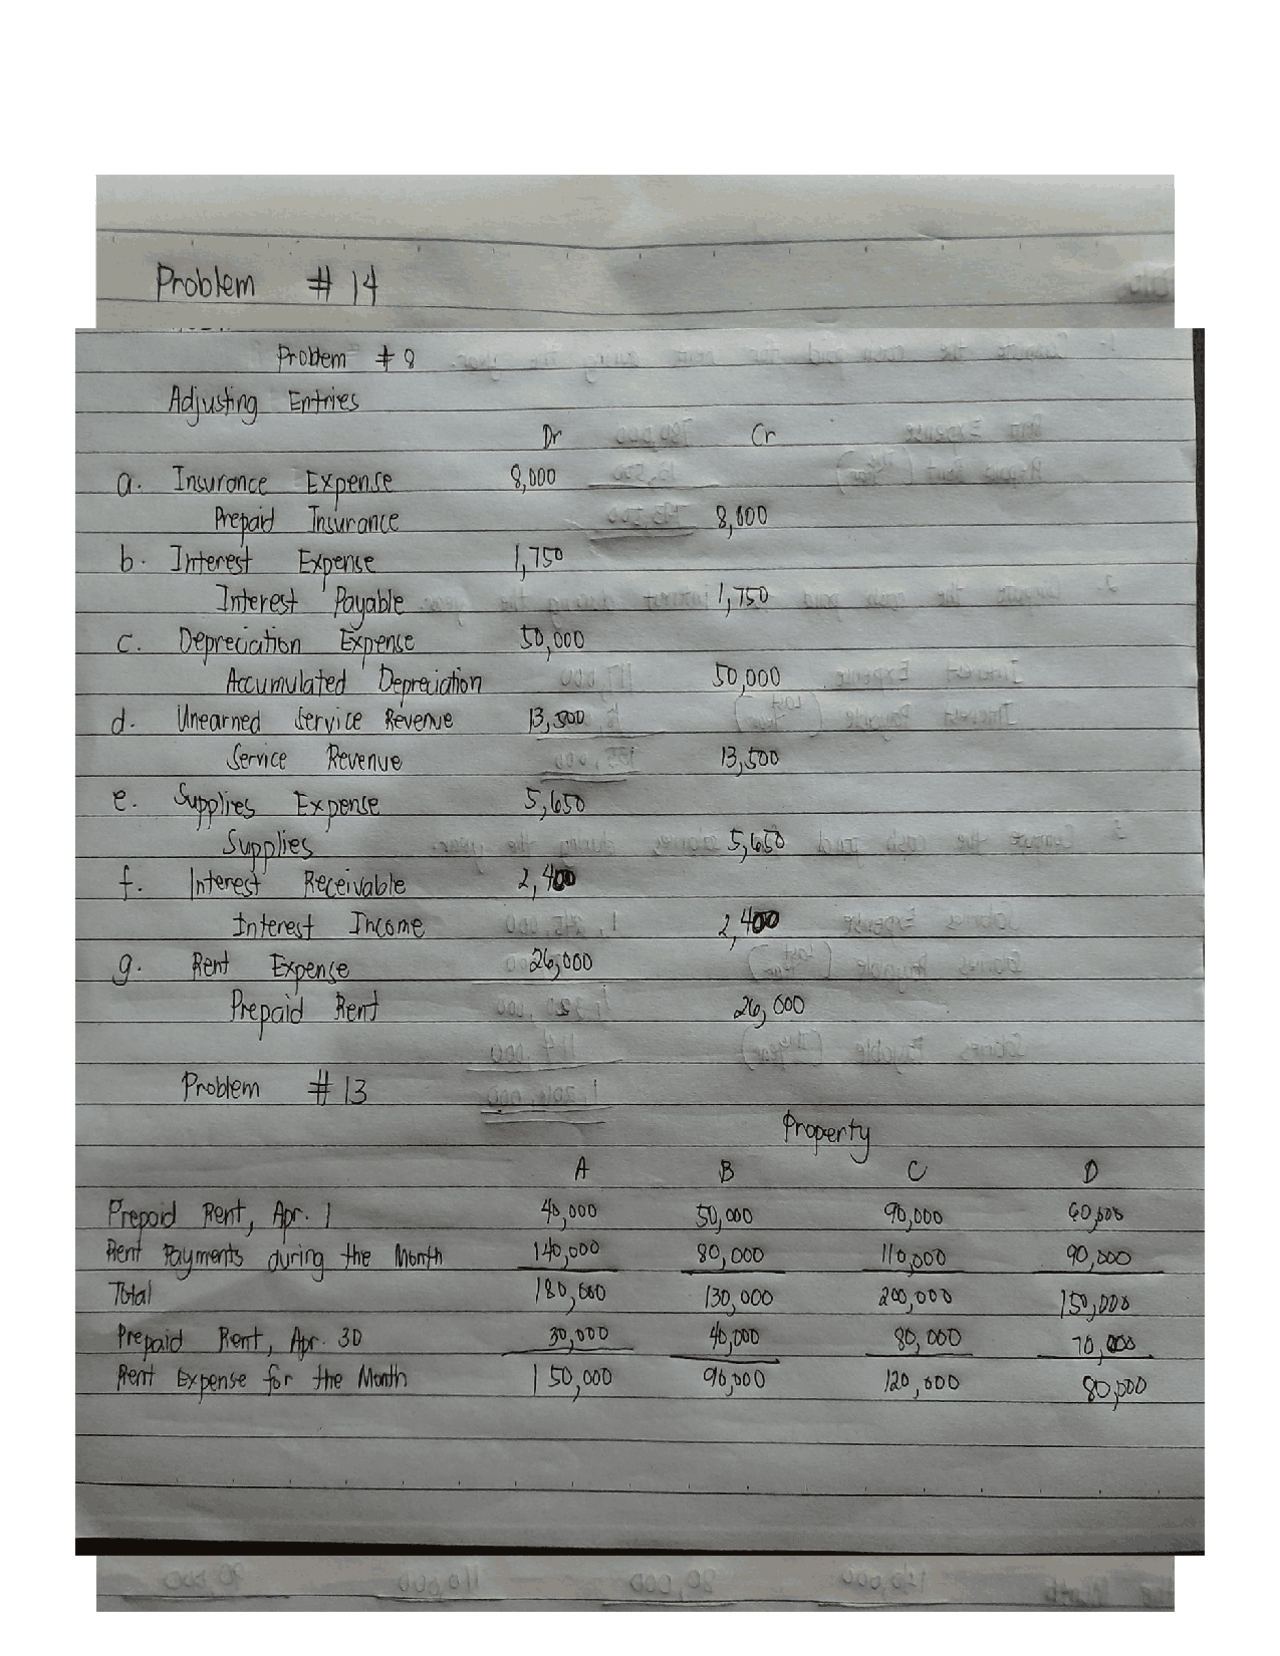 Problem # 14
Problem # 8
Adjusting Entries
Dr Cr
a. Insurance Expense 8,000
Prepaid Insurance 8,000
b. Interest Expense 1,750
Interest Payable 1,750
c. Depreciation Expense 50,000
Accumulated Depreciation 50,000
d. Unearned Service Revenue 13,500
Service Revenue 13,500
e. Supplies Expense 5,650
Supplies 5,650
f. Interest Receivable 2,400
Interest Income 2,400
g. Rent Expense 26,000
Prepaid Rent 26,000
Problem # 13
Property
A B C D
Prepaid Rent, Apr. 1 40,000 50,000 90,000 60,000
Rent Payments during the Month 140,000 80,000 110,000 90,000
Total 180,000 130,000 200,000 150,000
Prepaid Rent, Apr. 30 30,000 40,000 80,000 70,000
Rent Expense for the Month 150,000 90,000 120,000 80,000